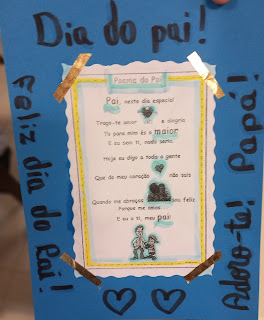 Dia do pai!
Feliz dia do Pai!
Poema do Pai
Pai, neste dia especial
Trago-te amor e alegria
Tu para mim és o maior
E eu sem ti, nada seria.
Hoje eu digo a toda a gente
Que do meu coração não sais
Quando me abraças sou feliz
Porque me amas
E eu a ti, meu pai
Adoro-te! Papá!